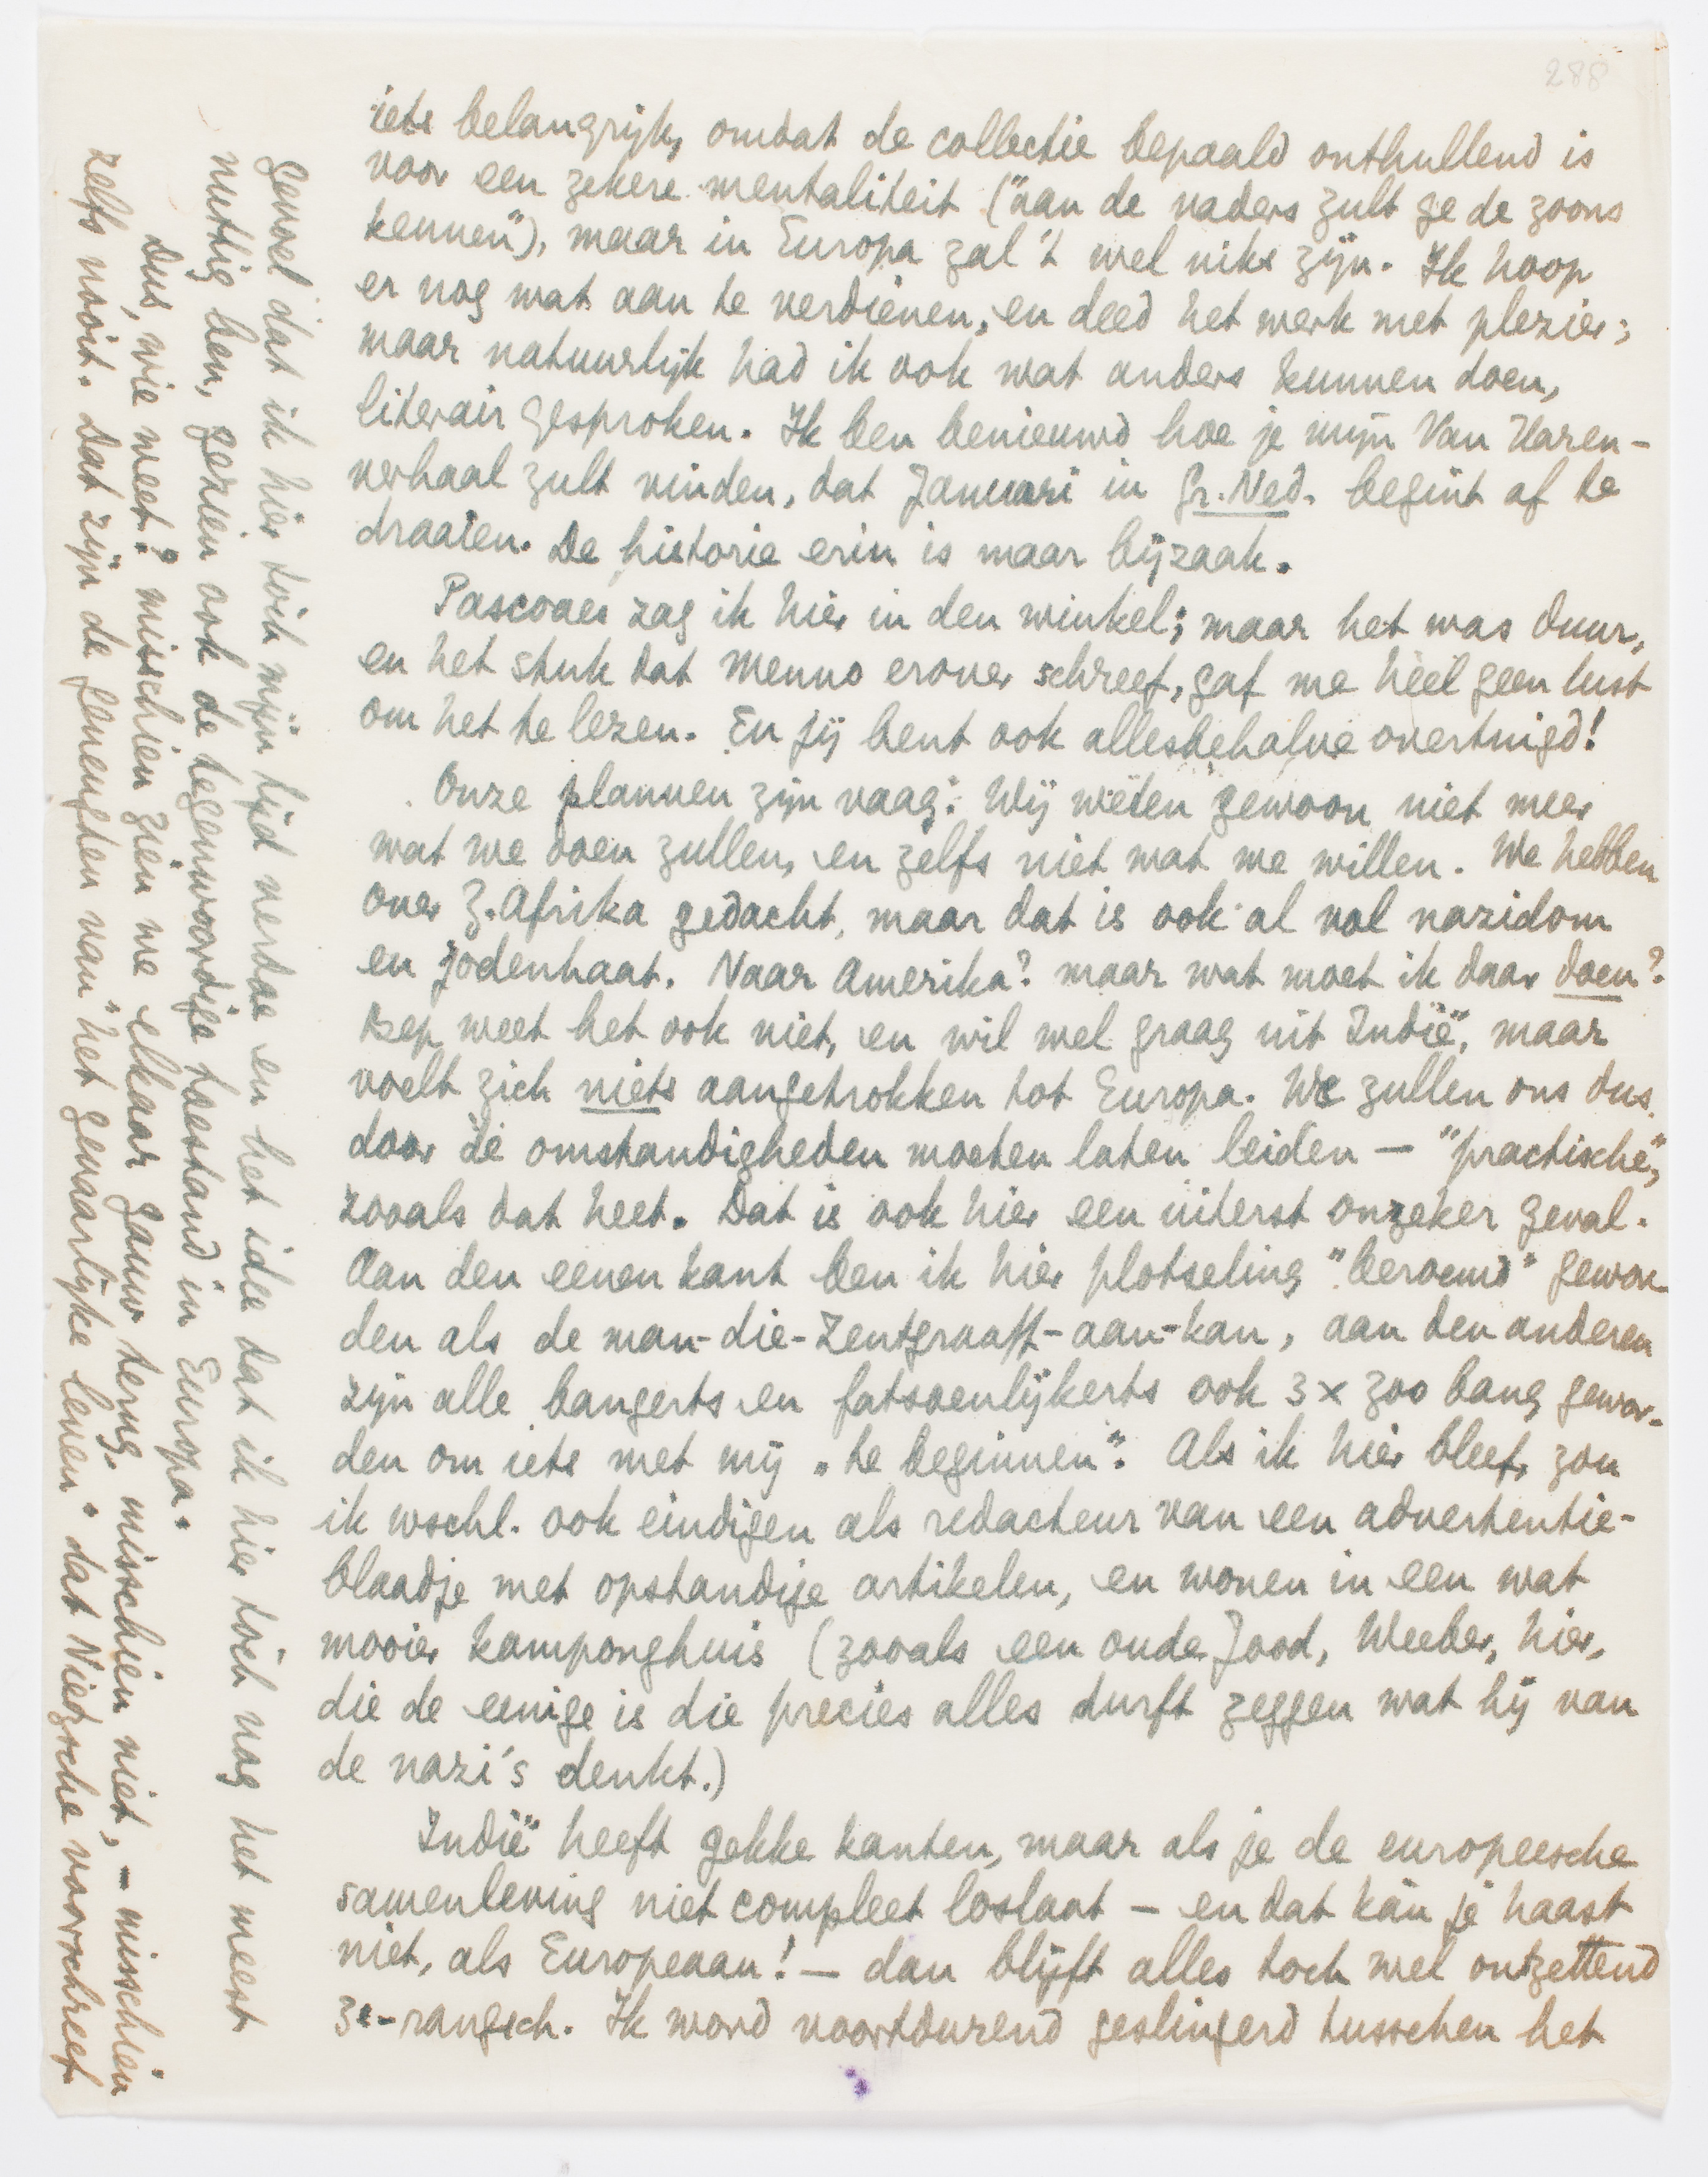 288
iets belangrijk, omdat de collectie bepaald onthullend is
voor een zekere mentaliteit ("aan de vaders zult ge de zoons
kennen"), maar in Europa zal 't wel niks zijn. Ik hoop
er nog wat aan te verdienen, en deed het werk met plezier;
maar natuurlijk had ik ook wat anders kunnen doen,
literair gesproken. Ik ben benieuwd hoe je mijn Van Haren-
verhaal zult vinden, dat Januari in Gr. Ned. begint af te
draaien. De historie erin is maar bijzaak.
Pascoaes zag ik hier in den winkel; maar het was duur,
en het stuk dat Menno erover schreef, gaf me héél geen lust
om het te lezen. En jij bent ook allesbehalve overtuigd!
Onze plannen zijn vaag. Wij wéten gewoon niet meer
wat we doen zullen, en zelfs niet wat we willen. We hebben
over Z. Afrika gedacht, maar dat is ook al vol nazidom
en jodenhaat. Naar Amerika? maar wat moet ik daar doen?
Bep weet het ook niet, en wil wel graag uit Indië, maar
voelt zich niets aangetrokken tot Europa. We zullen ons dus
door de omstandigheden moeten laten leiden — "practische",
zooals dat heet. Dat is ook hier een uiterst onzeker geval.
Aan den eenen kant ben ik hier plotseling "beroemd" gewor-
den als de man-die-Zentgraaff-aan-kan, aan den anderen
zijn alle bangerts en fatsoenlijkerts ook 3 x zoo bang gewor-
den om iets met mij "te beginnen". Als ik hier bleef, zou
ik wschl. ook eindigen als redacteur van een advertentie-
blaadje met opstandige artikelen, en wonen in een wat
mooier kamponghuis (zooals een oude Jood, Weeber, hier,
die de eenige is die precies alles durft zeggen wat hij van
de nazi's denkt.)
Indië heeft gekke kanten, maar als je de europeesche
samenleving niet compleet loslaat — en dat kán je haast
niet, als Europeaan! — dan blijft alles toch wel ontzettend
3e-rangsch. Ik word voortdurend geslingerd tusschen het
gevoel dat ik hier tóch mijn tijd verdoe en het idee dat ik hier tóch nog het meest
nuttig ben, gezien ook de tegenwoordige toestand in Europa.
Dus, wie weet? misschien zien we elkaar gauw terug, misschien niet, — misschien
zelfs nooit. Dat zijn de geneugten van "het gevaarlijke leven" dat Nietzsche voorschreef